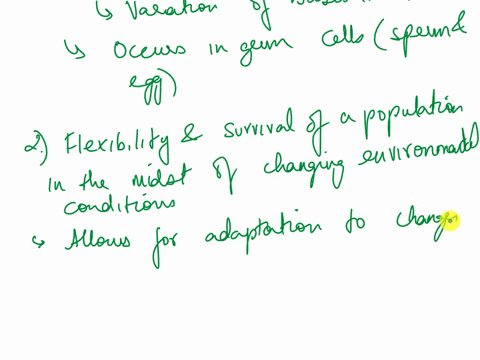 ↳ Variation of bases in
↳ Occurs in germ cells (sperm &
egg)
2) Flexibility & survival of a population
in the midst of changing environmental
conditions
↳ Allows for adaptation to changes